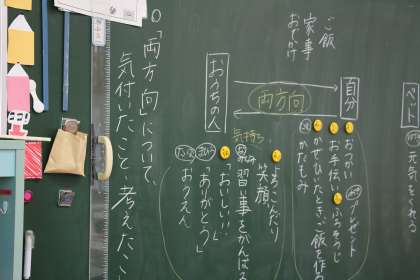 ○「両方向」について、
気付いたこと・考えたこ
ご飯
家事
おでかけ
ペット
元気でくる
自分
両方向
おうちの人
おつかい
お手伝い
おふろそうじ
プレゼント
かぜひいたときご飯を作
かたもみ
気持ち
笑顔
習い事をがんばる
「おいしい!!」
「ありがとう」
おうえん